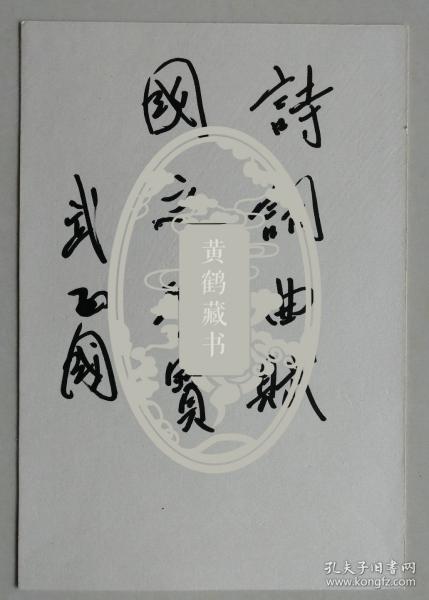 詩詞曲賦
國之寶
武正國
黄鹤藏书
孔夫子旧书网
www.kongfz.com